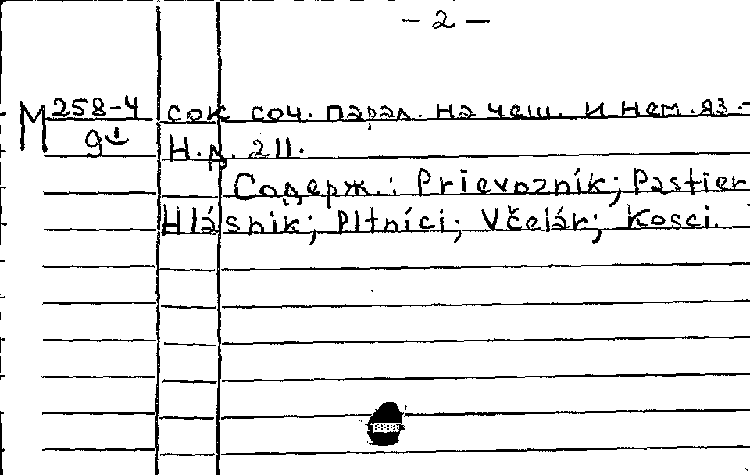 – 2 –
М 258-4 сок соч. парал. на чеш. и нем. яз. –
9 Н.д. 211.
Содерж.: Prievozník; Pastier
Hlásnik; Pltníci; Včelár; Kosci.